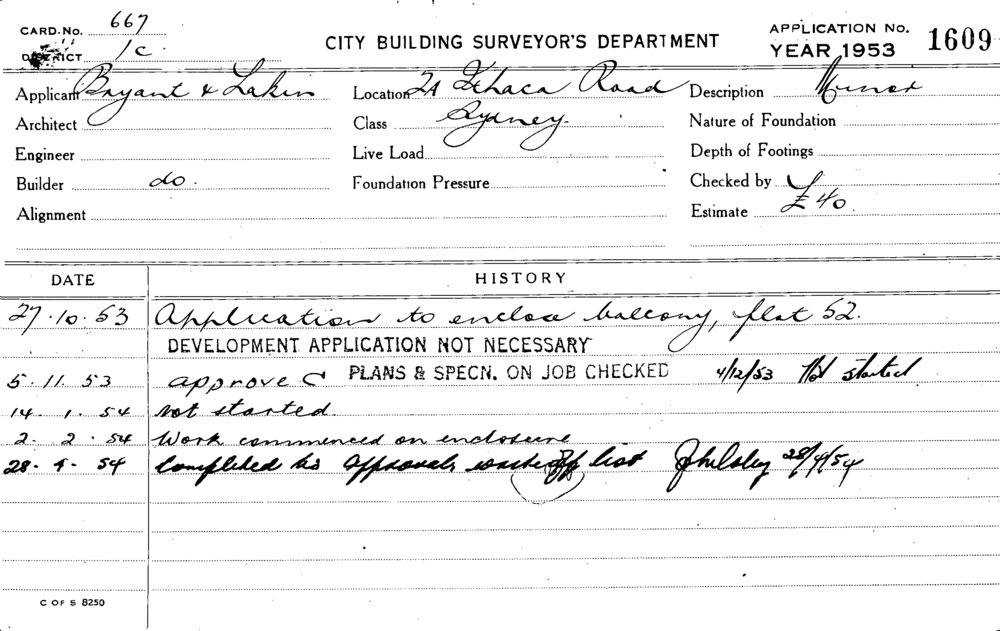 CARD. No. 667
DISTRICT 1C
CITY BUILDING SURVEYOR'S DEPARTMENT
APPLICATION No. 1609
YEAR 1953
Applicant Bryant & Lakin Location 2A Ithaca Road Description Minor
Architect Class Sydney. Nature of Foundation
Engineer Live Load Depth of Footings
Builder do. Foundation Pressure Checked by
Alignment Estimate £40.
DATE HISTORY
27.10.53 Application to enclose balcony, flat 52.
DEVELOPMENT APPLICATION NOT NECESSARY
5.11.53 approved PLANS & SPECN. ON JOB CHECKED 4/12/53 Not started
14.1.54 not started.
2.2.54 Work commenced on enclosure
28.4.54 Completed as approved, off list 28/4/54
C OF S 8250